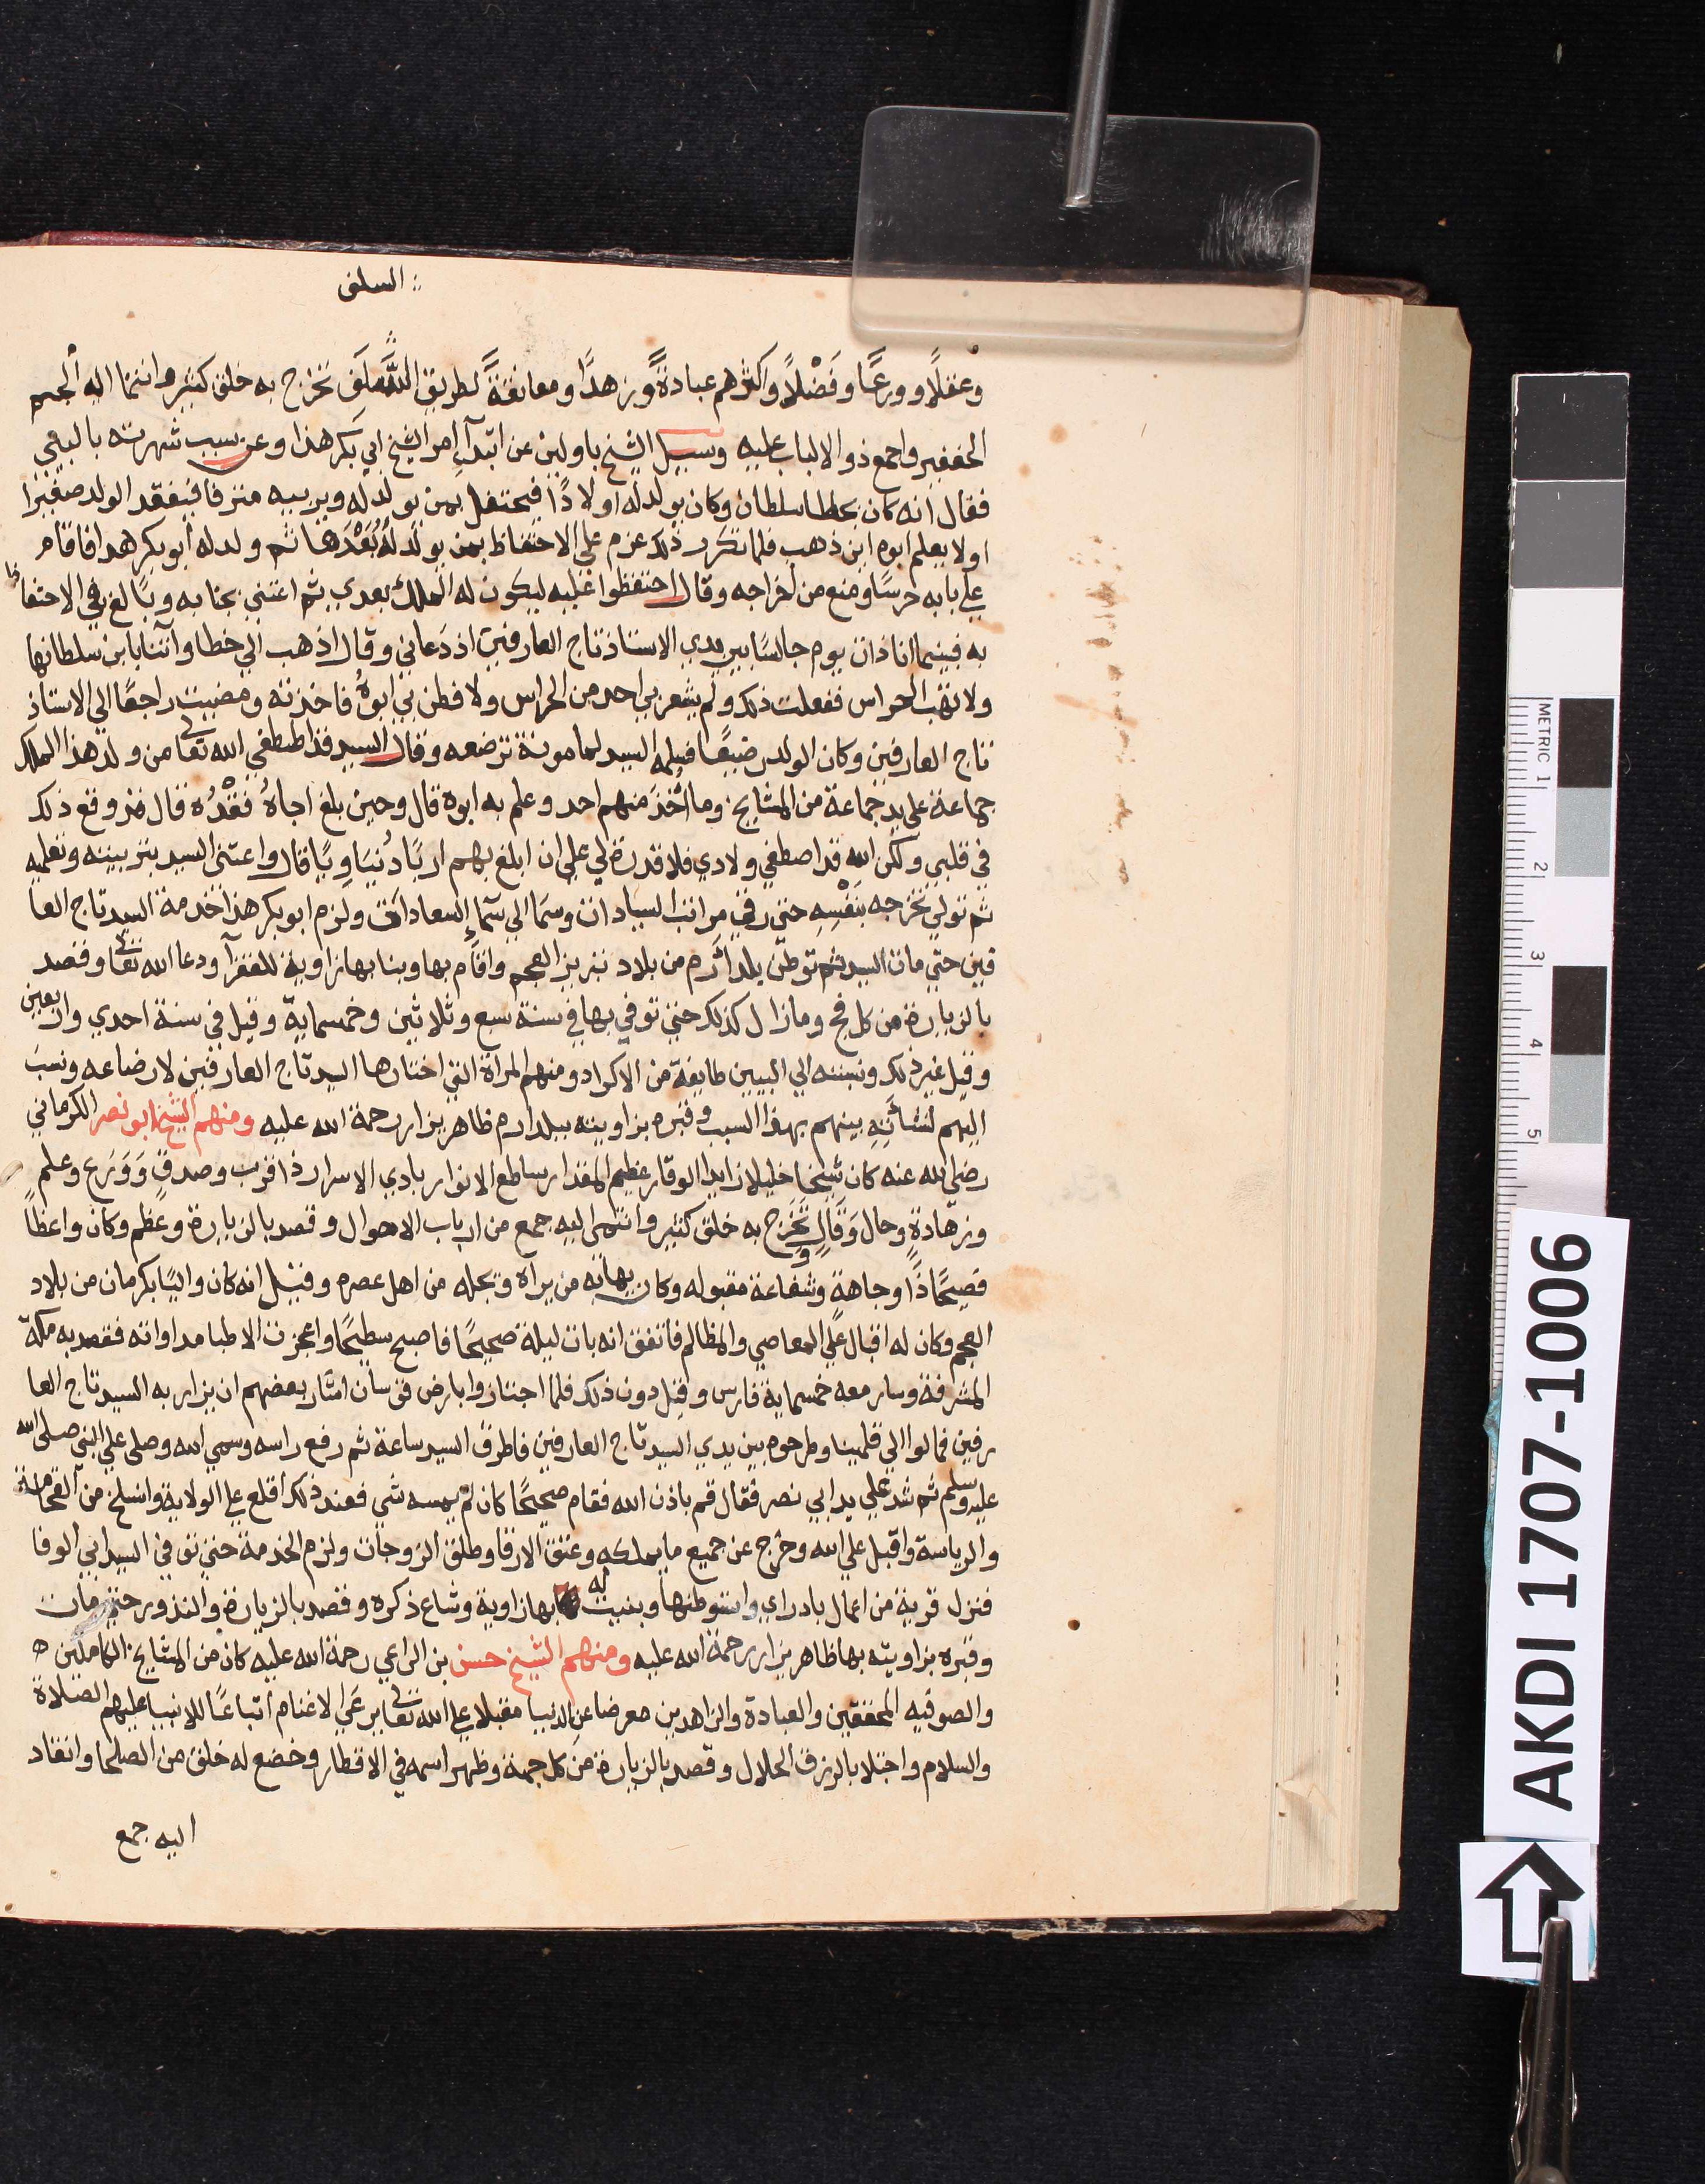 السلف
وعقلًا وورعًا وفَضْلًا واكثرهم عبادةً وزهدًا ومعانقةً لطريق السَّلَف تخرج به خلق كثير وانتما اليه الجم
الغفير واجمع ذو الالباب عليه وسيل الشيخ باولين عن ابتدآء امر الشيخ ابي بكر هذا وعن سبب شهرته بالبيي
فقال انه كان بخطا سلطان وكان يولد له اولادًا فيحتفل بمن يولد له ويربيه مترفا فيفقد الولد صغيرا
اولا يعلم ابوه اين ذهب فلما تكرر ذلك عزم على الاحتفاظ بمن يولد لهُ بَعْدَها ثم ولد له أبو بكر هذا فاقام
علي بابه حرسًا ومنع من اخراجه وقال احتفظوا عليه ليكون له الملك بعدي ثم اعتني بجنابه وبالغ في الاحتفا ظ
به فبينما انا ذات يوم جالسًا بين يدي الاستاذ تاج العارفين اذ دَعاني وقال اذهب الي خطا وآتنا بابن سلطانها
ولا تهب الحراس ففعلت ذلك ولم يشعر بي احد من الحراس ولا فطن بي ابوهُ فاخذته ومضيت راجعًا الي الاستاذ
تاج العارفين وكان الولد رضيعًا فسلمه السيد لمامونة ترضعه وقال السيد قد اصطفي الله تعالى من ولد هذا الملك
جماعة على يد جماعة من المشايخ وما أُخذَ منهم احد وعلم به ابوه قال وحين بلغ اباهُ فَقْدُه قال قد وقع ذلك
في قلبي ولكن الله قد اصطفي ولادي فلا قدرة لي علي ان ابلغ بهم اربًا دُنيَاوِيًا قال واعتنى السيد بتربيته وتعليمه
ثم تولي تخرجه بنَفْسِهِ حتى رقي مراتب السيادات وسَمَا الي سَمآءِ السعادات ولزم ابو بكر هذا خدمة السيد تاج العا
فين حتي مات السيد ثم توطن بلد ادرم من بلاد تبريز العجم واقام بها وبنا بها زاوية للفقرآ ودعا الله تعالى وقصد
بالزيارة من كل فج وما زال كذلك حتي توفي بها في سنة سبع وثلاثين وخمسماية وقيل في سنة احدي واربعين
وقيل غير ذلك ونسبته الي البيبين طايفة من الاكراد ومنهم المراة التي اختارها السيد تاج العارفين لارضاعه ونسبَ
اليهم لنشأتِهِ بينهم بهذا السبب وقبره بزاويته ببلد ادرم ظاهر يزار رحمة الله عليه ومنهم الشيخ ابو نصر الكرماني
رضي الله عنه كان شيخا جليلا زايد الوقار عظيم المقدار ساطع الانوار بادي الاسرار ذا قرب وصدقٍ وَوَرَعٍ وعلم
وزهادةٍ وحال وَقَالٍ تَخَرَج به خلق كثير وانتمى اليه جمع من ارباب الاحوال وقصد بالزيارة وعظم وكان واعظًا
فصيحًا ذا وجاهةٍ وشفاعة مقبوله وكان يهابه من يراه ويجله من اهل عصره وقيل انه كان واليًا بكرمان من بلاد
العجم وكان له اقبال علي المعاصي والمظالم فاتفق انه بات ليلة صحيحًا فاصبح سطيحًا واعجزت الاطبا مداواته فقصد به مكة
المشرفة وسار معه خمسماية فارس وقيل دون ذلك فلما اجتازوا بارض قوسان اشار بعضهم ان يزار به السيد تاج العا
رفين فمالوا الي قلمينا وطرحوه بين يدي السيد تاج العارفين فاطرق السيد ساعة ثم رفع راسه وسمي الله وصلى علي النبي صلى الله
عليه وسلم ثم شد علي يد ابي نصر فقال قم باذن الله فقام صحيحًا كان لم يمسه شي فعند ذلك اقلع علي الولاية وانسلخ من
والرياسة واقبل علي الله وخرج عن جميع ما يملكه وعتق الارقا وطلق الزوجات ولزم الخدمة حتي توفي السيد ابي الوفا
فنزل قرية من اعمال بادراي واستوطنها وبنيت له بها زاوية وشاع ذكره وقصد بالزيارة والنذور حتي مات
وقبره بزاويته بها ظاهر يزار رحمة الله عليه ومنهم الشيخ حسن بن الراعي رحمة الله عليه كان من المشايخ الكاملين
والصوفيه المحققين والعبادة والزاهدين معرضا عن الدنيا مقبلا علي الله تعالى يرعَي الاغنام اتباعًا للانبيا عليهم الصلاة
والسلام واجتلابا لرزق الحلال وقصد بالزيارة من كل جهة وظهر اسمه في الاقطار وخضع له خلق من الصلحا وانقاد
اليه جمع
METRIC 1 2 3 4 5
AKDI 1707-1006